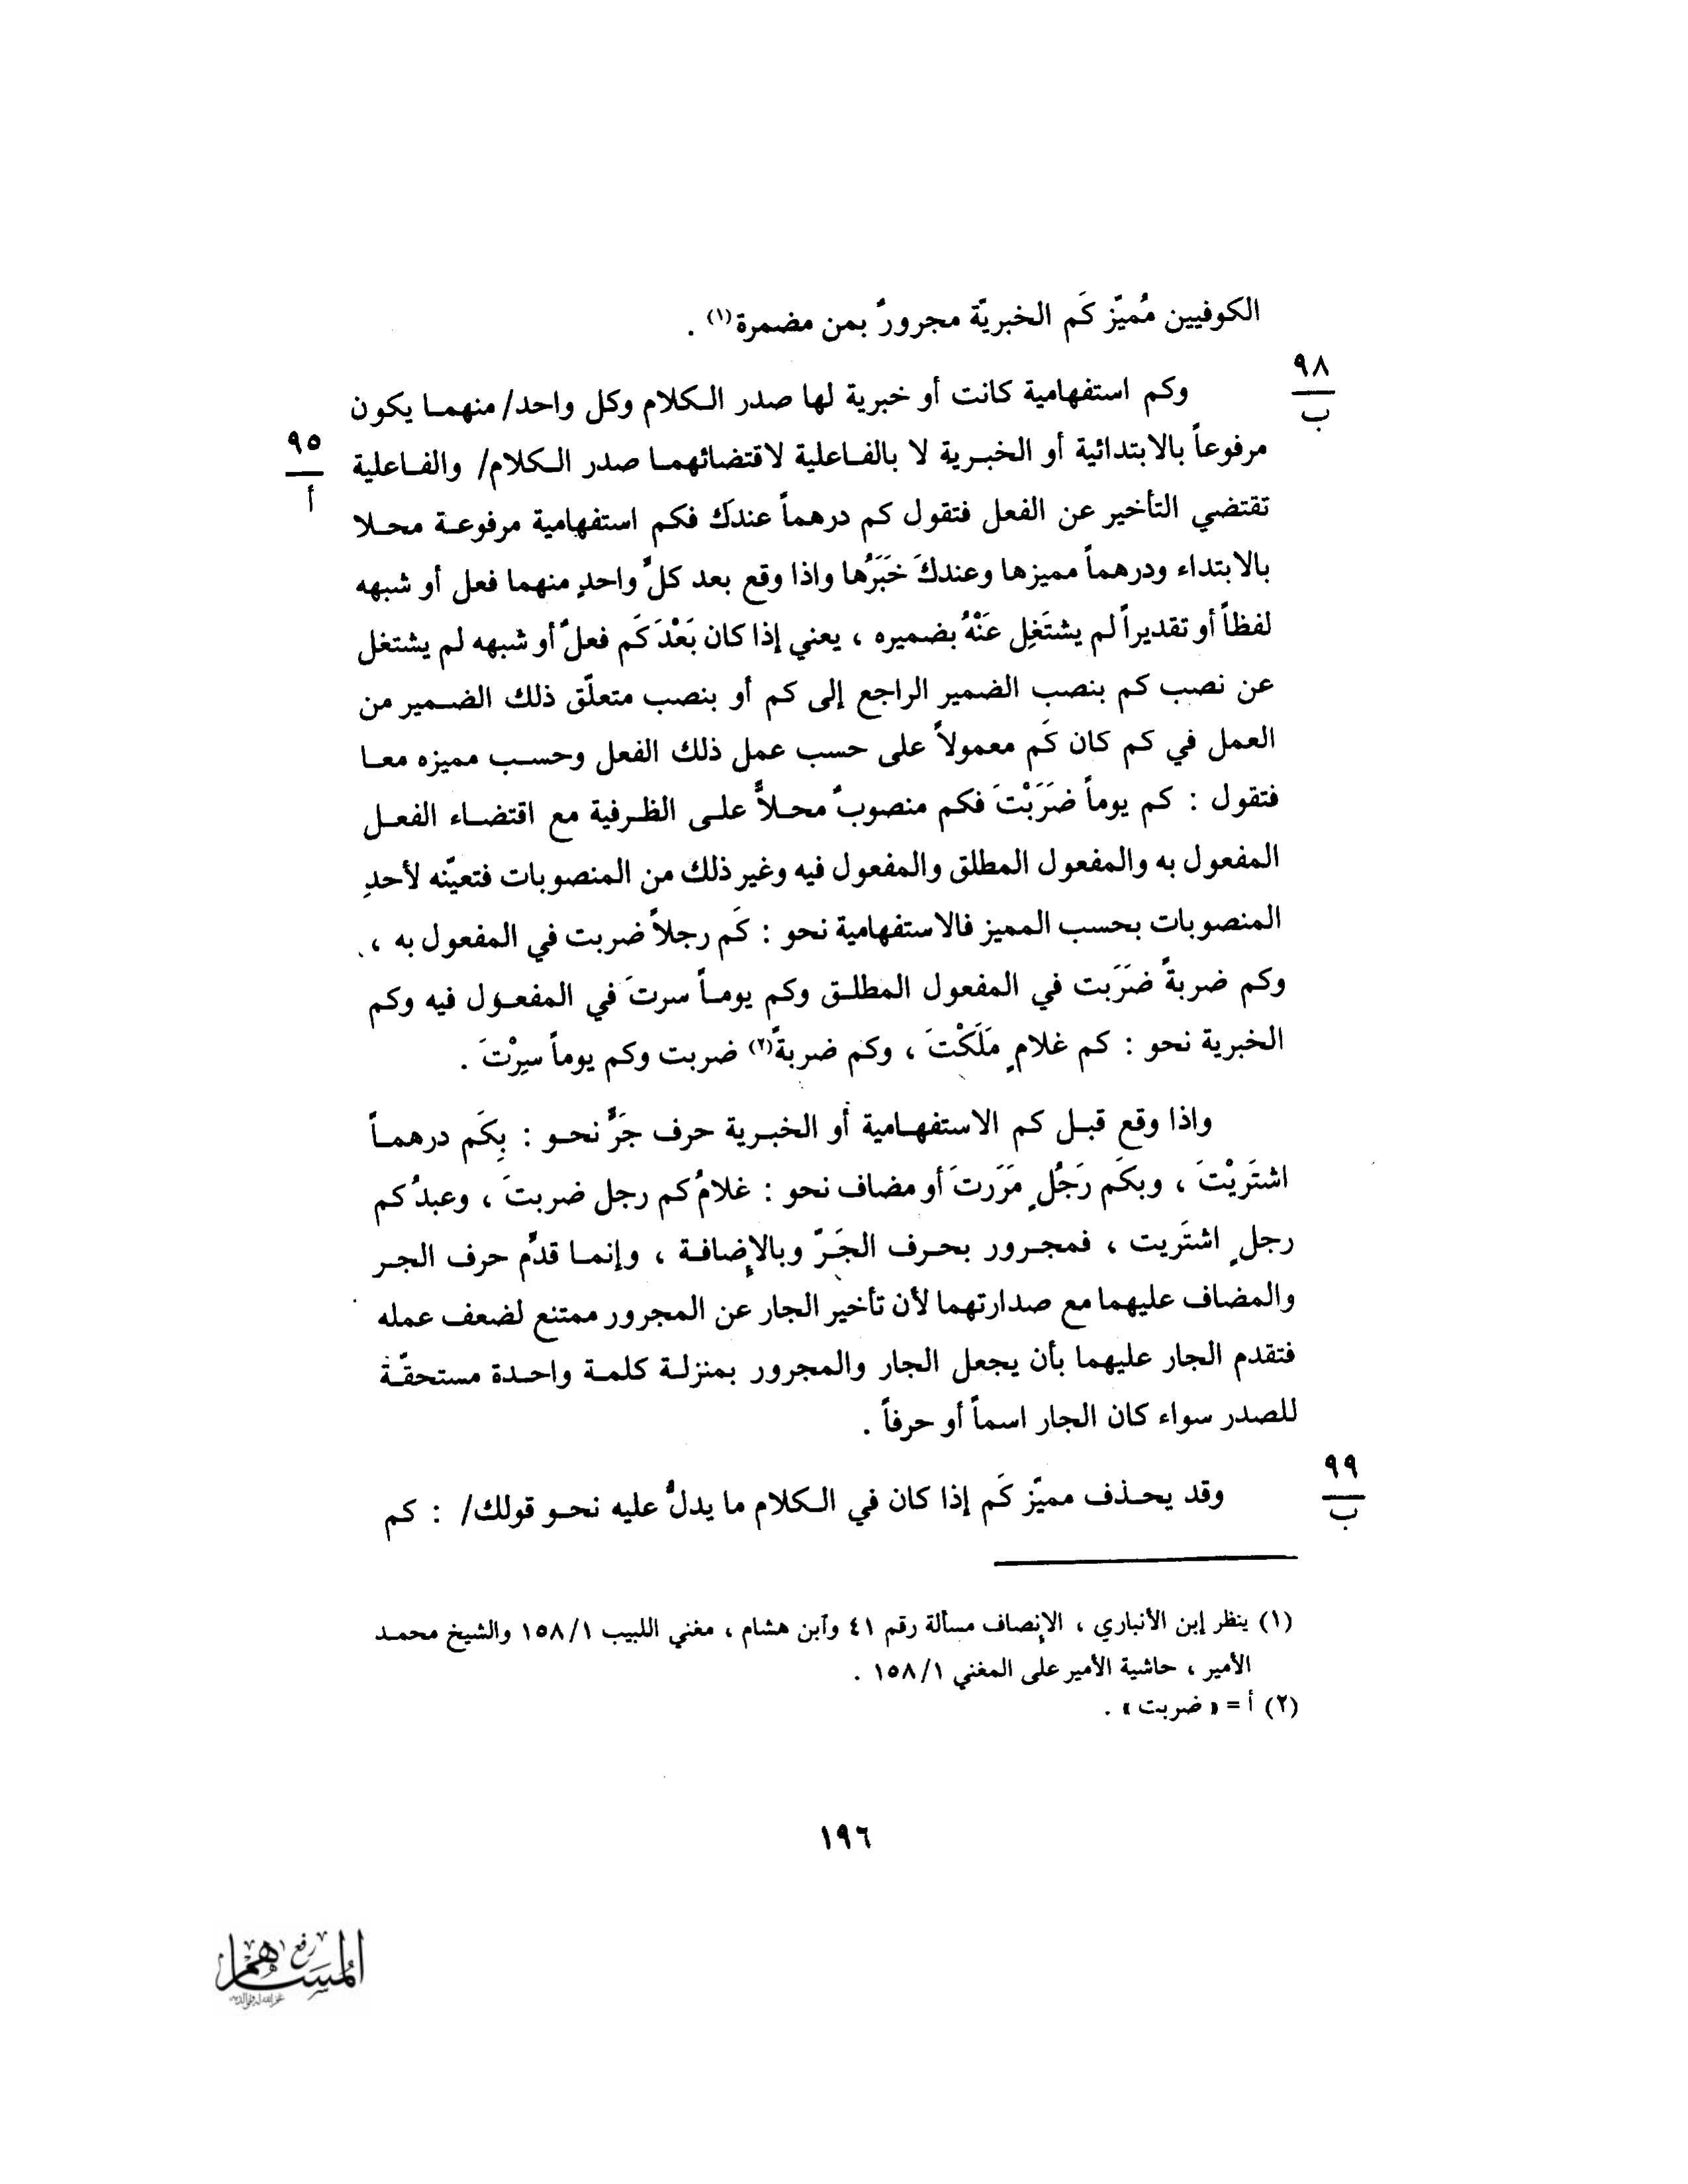 الكوفيين مُميّز كَم الخبريّة مجرورٌ بمن مضمرة(١) .
٩٨
ب
وكم استفهامية كانت أو خبرية لها صدر الكلام وكل واحد/ منهما يكون
٩٥
أ
مرفوعاً بالابتدائية أو الخبرية لا بالفاعلية لاقتضائهما صدر الكلام/ والفاعلية
تقتضي التأخير عن الفعل فتقول كم درهماً عندكَ فكم استفهامية مرفوعة محلا
بالابتداء ودرهماً مميزها وعندكَ خَبَرُها واذا وقع بعد كلِّ واحدٍ منهما فعل أو شبهه
لفظاً أو تقديراً لم يشتَغِل عَنْهُ بضميره ، يعني إذا كان بَعْدَ كَم فعلٌ أو شبهه لم يشتغل
عن نصب كم بنصب الضمير الراجع إلى كم أو بنصب متعلّق ذلك الضمير من
العمل في كم كان كَم معمولاً على حسب عمل ذلك الفعل وحسب مميزه معا
فتقول : كم يوماً ضَرَبْتَ فكم منصوبٌ محلاً على الظرفية مع اقتضاء الفعل
المفعول به والمفعول المطلق والمفعول فيه وغير ذلك من المنصوبات فتعيّنه لأحدِ
المنصوبات بحسب المميز فالاستفهامية نحو : كَم رجلاً ضربت في المفعول به ،
وكم ضربةً ضَرَبت في المفعول المطلق وكم يوماً سرتَ في المفعول فيه وكم
الخبرية نحو : كم غلامٍ مَلَكْتَ ، وكم ضربةً(٢) ضربت وكم يوماً سيِرْتَ .
واذا وقع قبل كم الاستفهامية أو الخبرية حرف جَرٍّ نحو : بِكَم درهماً
اشتَريْتَ ، وبكَم رَجُلٍ مَرَرتَ أو مضاف نحو : غلامُ كم رجل ضربتَ ، وعبدُ كم
رجلٍ اشتَريت ، فمجرور بحرف الجَرّ وبالإضافة ، وإنما قدِّم حرف الجر
والمضاف عليهما مع صدارتهما لأن تأخير الجار عن المجرور ممتنع لضعف عمله
فتقدم الجار عليهما بأن يجعل الجار والمجرور بمنزلة كلمة واحدة مستحقّة
للصدر سواء كان الجار اسماً أو حرفاً .
٩٩
ب
وقد يحذف مميّز كَم إذا كان في الكلام ما يدلُّ عليه نحو قولك/ : كم
(١) ينظر إبن الأنباري ، الإنصاف مسألة رقم ٤١ وآبن هشام ، مغني اللبيب ١/١٥٨ والشيخ محمد
الأمير ، حاشية الأمير على المغني ١/١٥٨ .
(٢) أ = « ضربت » .
١٩٦
رفع
المساهم
غفر الله له ولوالديه